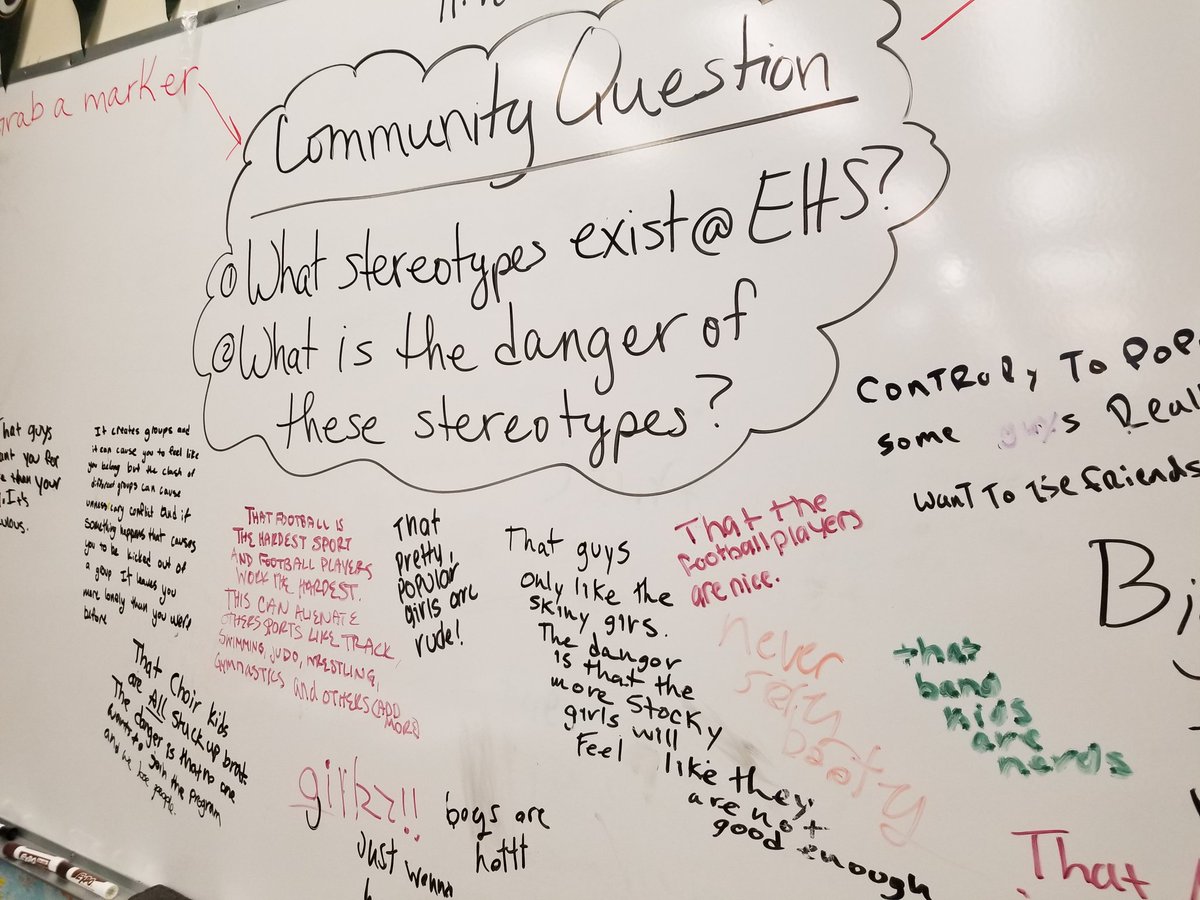 Grab a marker
Community Question
① What stereotypes exist @ EHS?
② What is the danger of
these stereotypes?
That guys
want you for
than your
It's
It creates groups and
it can cause you to feel like
you belong but the clash of
different groups can cause
unnessicary conflict and if
something happens that causes
you to be kicked out of
a group It leaves you
more lonely than you were
before
THAT FOOTBALL IS
THE HARDEST SPORT
AND FOOTBALL PLAYERS
WORK THE HARDEST.
THIS CAN ALIENATE
OTHER SPORTS LIKE TRACK,
SWIMMING, JUDO, WRESTLING,
GYMNASTICS and OTHERS (ADD
MORE)
That
pretty,
popular
girls are
rude!
That guys
only like the
skiny girs.
The dangor
is that the
more stocky
girls will
Feel like they
are not
good enough
That the
football players
are nice.
never
baoty
that
band
kids
are
nerds
CONTROL, TO POP
some guys Reall
WANT TO BE friends
Bi
That Choir kids
are All Stuck up brat.
The danger is that no one
wants to join the program
and we lose people.
girlzz!!
just wanna
boys are
hottt
That
EXPO
EXPO